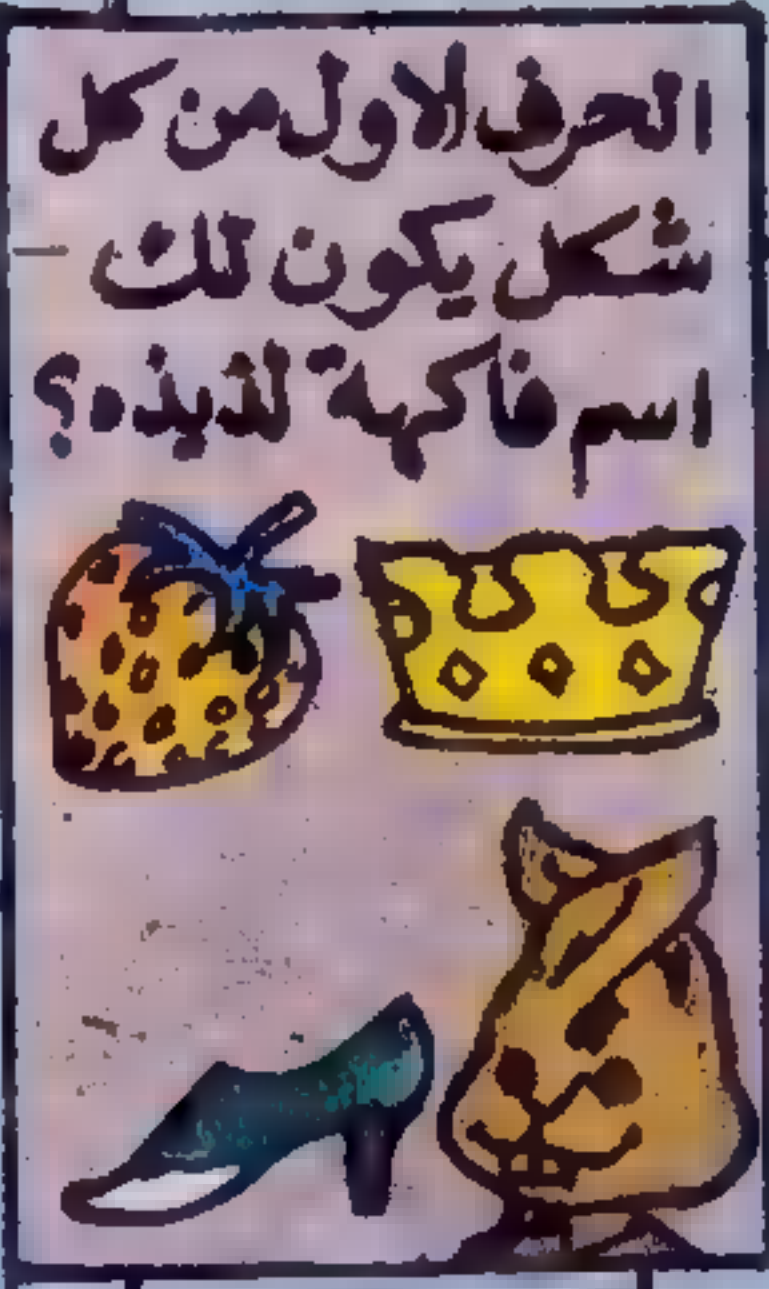 الحرف الاول من كل
شكل يكون لك -
اسم فاكهة لذيذه؟